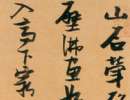 山石犖确
壁佛画
入高下窮